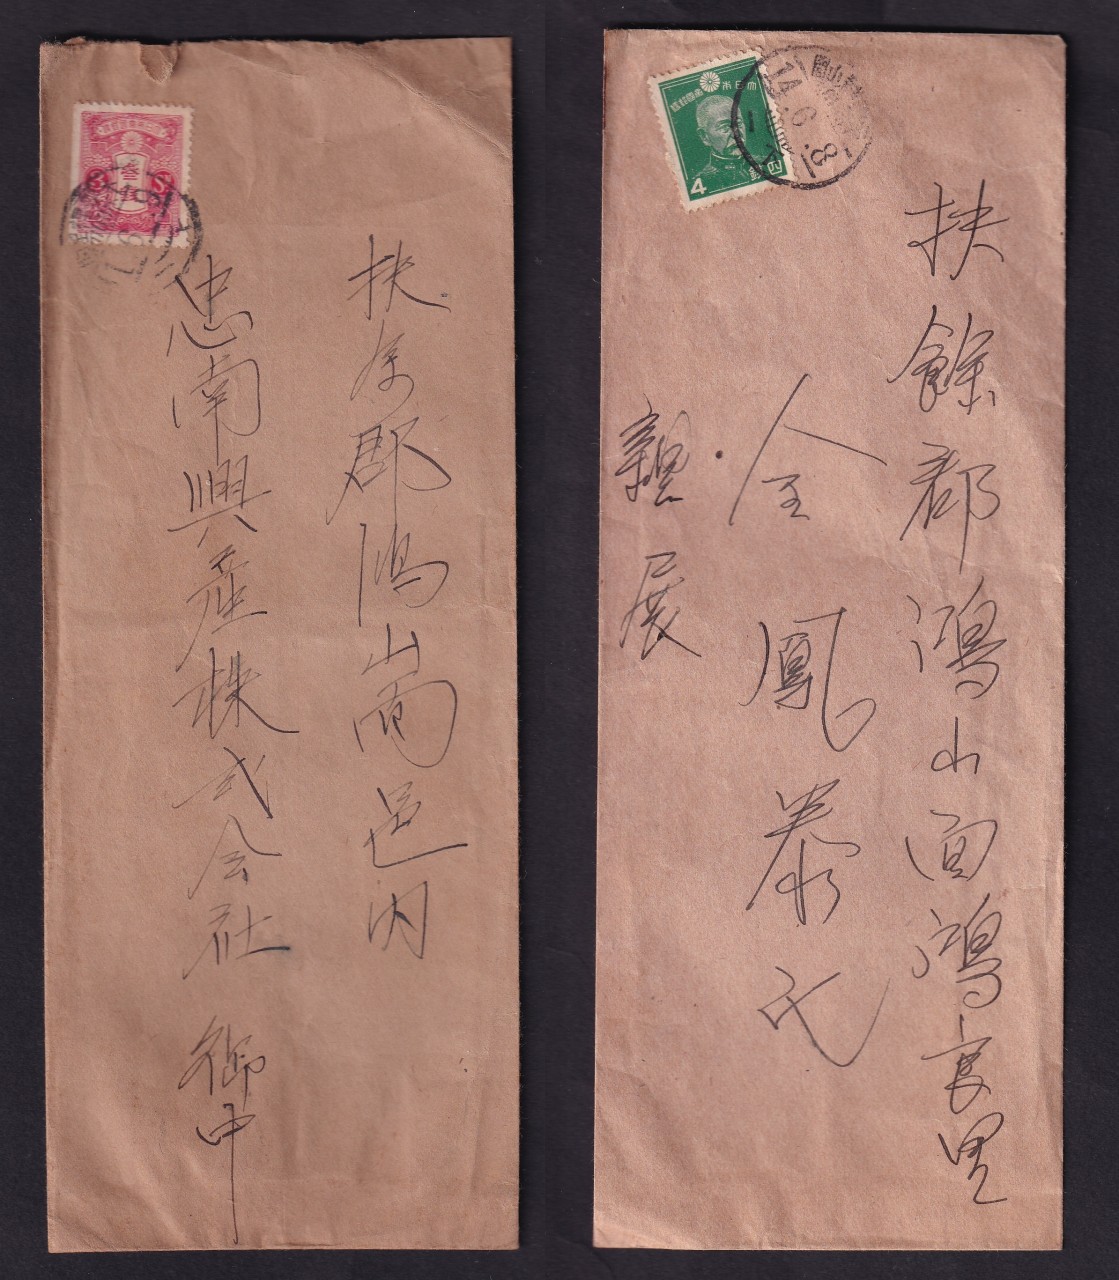 扶余郡鴻山面邑内
忠南興産株式会社 御中
3
大日本帝國郵便
4
扶餘郡鴻山面鴻良里
金鳳泰氏
親展